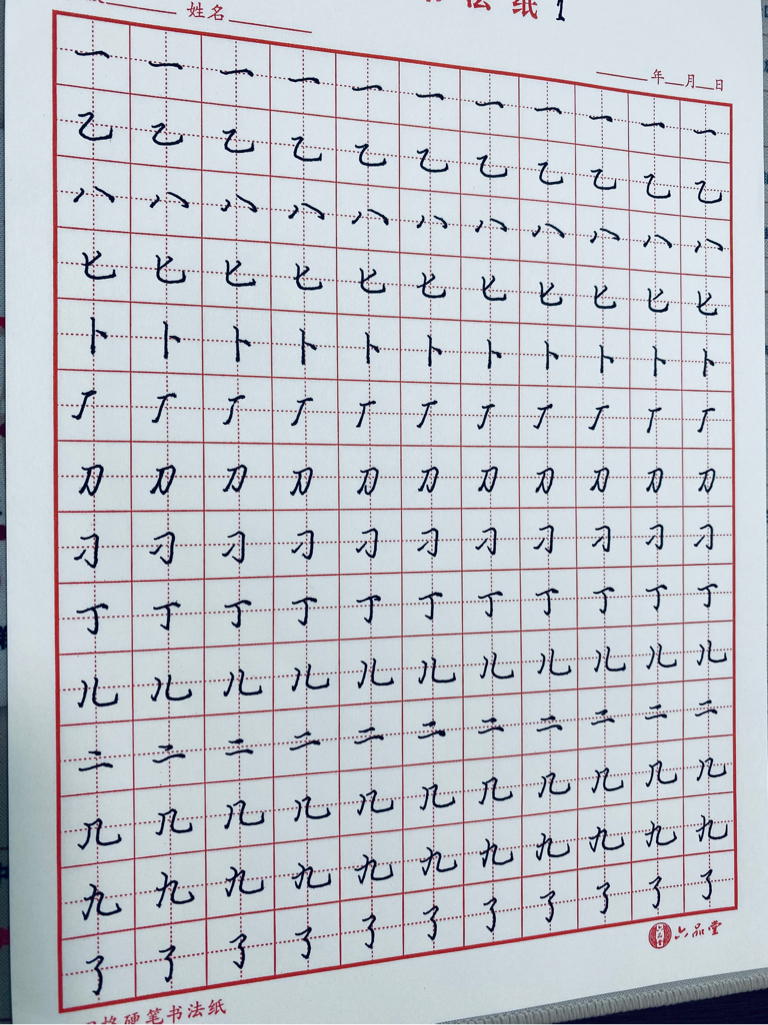 法纸 1
姓名
年 月 日
一 一 一 一 一 一 一 一 一 一 一
乙 乙 乙 乙 乙 乙 乙 乙 乙 乙 乙
八 八 八 八 八 八 八 八 八 八 八
匕 匕 匕 匕 匕 匕 匕 匕 匕 匕 匕
卜 卜 卜 卜 卜 卜 卜 卜 卜 卜 卜
厂 厂 厂 厂 厂 厂 厂 厂 厂 厂 厂
刀 刀 刀 刀 刀 刀 刀 刀 刀 刀 刀
刁 刁 刁 刁 刁 刁 刁 刁 刁 刁 刁
丁 丁 丁 丁 丁 丁 丁 丁 丁 丁 丁
儿 儿 儿 儿 儿 儿 儿 儿 儿 儿 儿
二 二 二 二 二 二 二 二 二 二 二
几 几 几 几 几 几 几 几 几 几 几
九 九 九 九 九 九 九 九 九 九 九
了 了 了 了 了 了 了 了 了 了 了
六品堂 六品堂
格硬笔书法纸